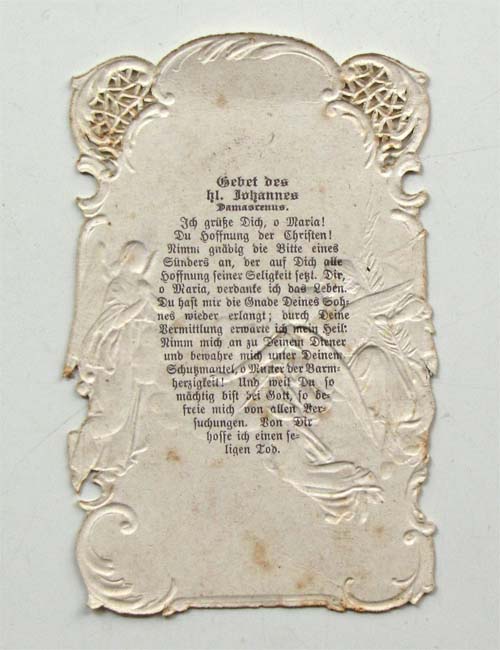 Gebet des
hl. Johannes
Damascenus.
Ich grüße Dich, o Maria!
Du Hoffnung der Christen!
Nimm gnädig die Bitte eines
Sünders an, der auf Dich alle
Hoffnung seiner Seligkeit setzt. Dir,
o Maria, verdanke ich das Leben.
Du hast mir die Gnade Deines Soh-
nes wieder erlangt; durch Deine
Vermittlung erwarte ich mein Heil:
Nimm mich an zu Deinem Diener
und bewahre mich unter Deinem
Schutzmantel, o Mutter der Barm-
herzigkeit! Und weil Du so
mächtig bist bei Gott, so be-
freie mich von allen Ver-
suchungen. Von Dir
hoffe ich einen se-
ligen Tod.